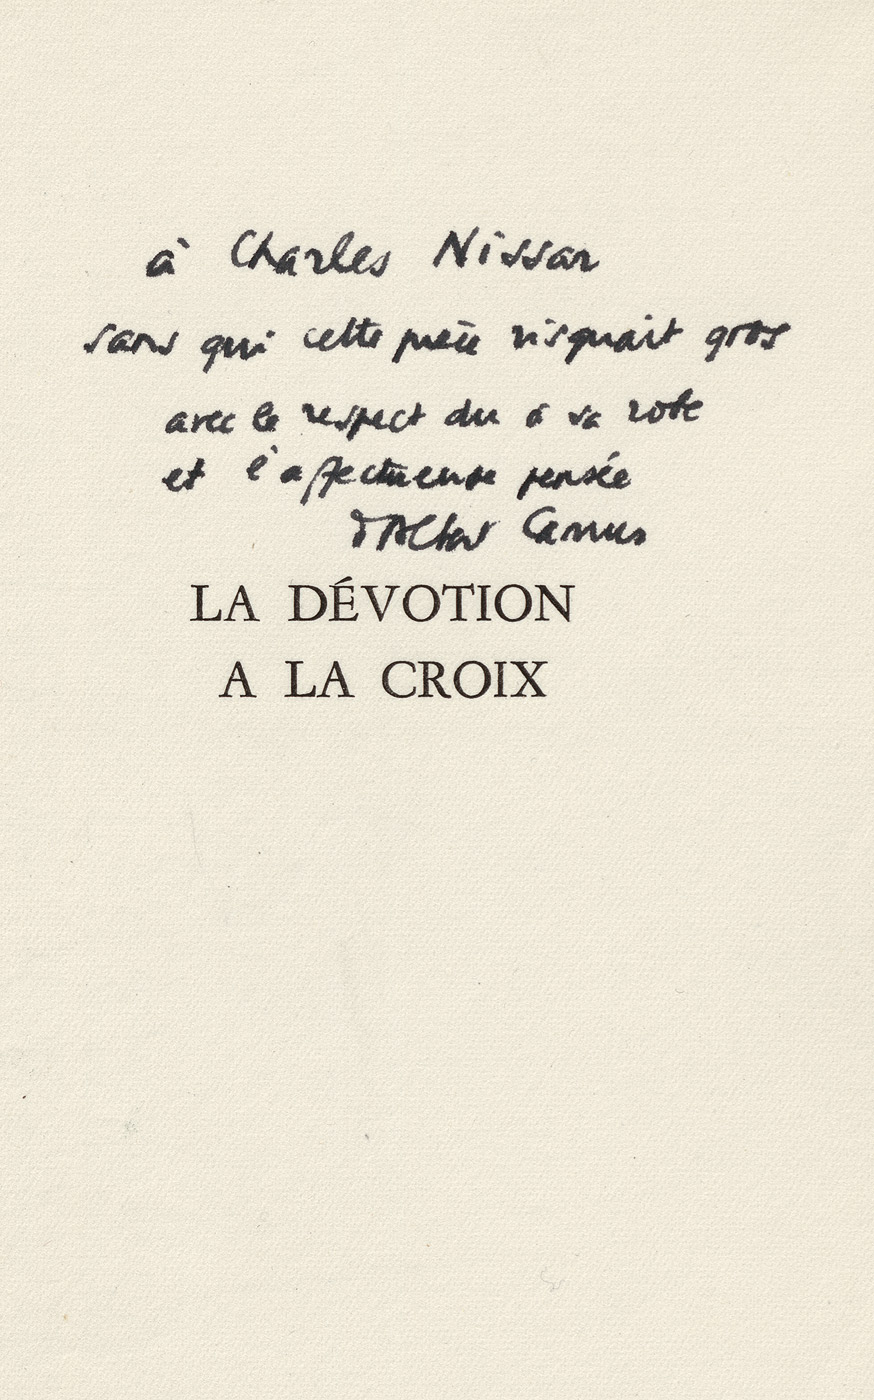 à Charles Nissar
sans qui cette pièce risquait gros
avec le respect du à sa robe
et l'affectueuse pensée
d'Albert Camus
LA DÉVOTION
A LA CROIX